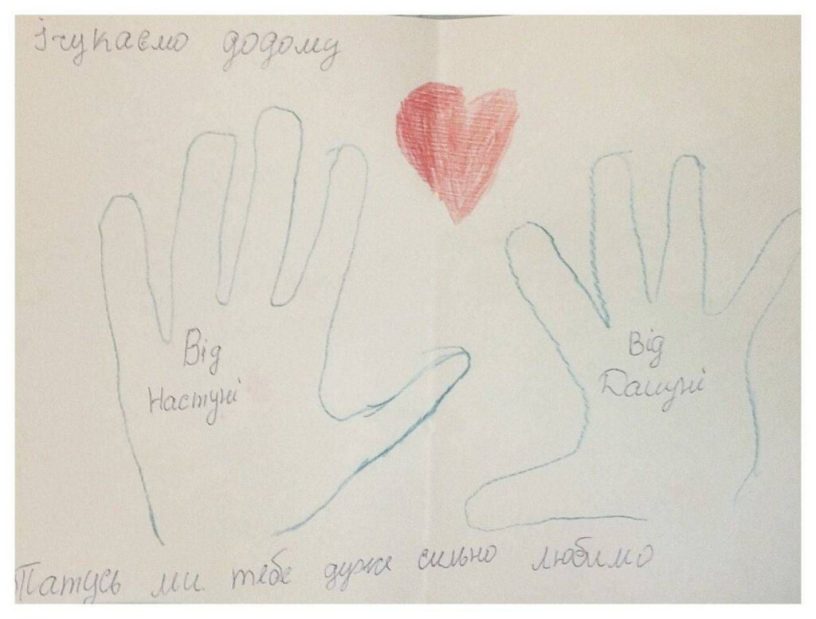 ічукаємо додому
Від
Настуні
Від
Дашуні
Татусь ми тебе дуже сильно любимо